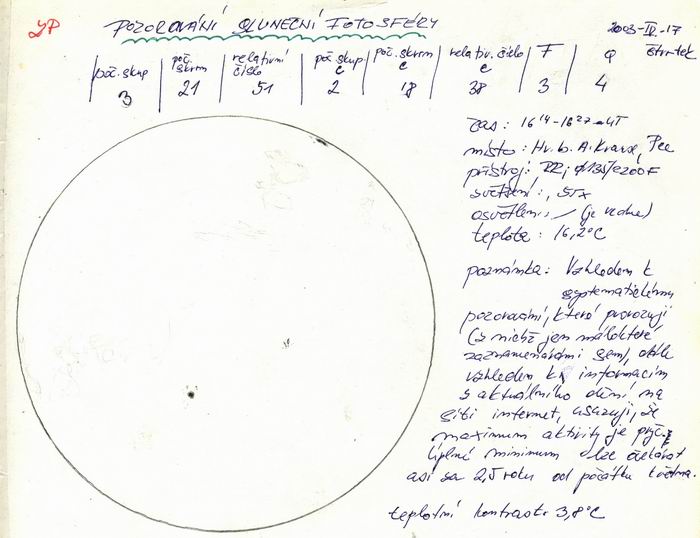 JP
POZOROVÁNÍ SLUNEČNÍ FOTOSFÉRY
2003-IV-17
čtvrtek
poč. skup
3
poč. skvrn
21
relativní číslo
51
poč. skup c
2
poč. skvrn c
18
relativ. číslo c
38
F
3
Q
4
čas : 16 14 - 16 27 UT
místo : Hv. b. A. Krause, Pce
přístroj :
zvětšení : 57x
osvětlení : (je vedne)
teplota : 16,2°C
poznámka : Vzhledem k
systematickému
pozorování, které provozuji
(z nichž jen málokteré
zaznamenávám sem), dále
vzhledem k informacím
z aktuálního dění na
síti internet, usuzuji, že
maximum aktivity je pryč,
úplné minimum lze očekávat
asi za 2,5 roku od počátku května.
teplotní kontrast : 3,8°C